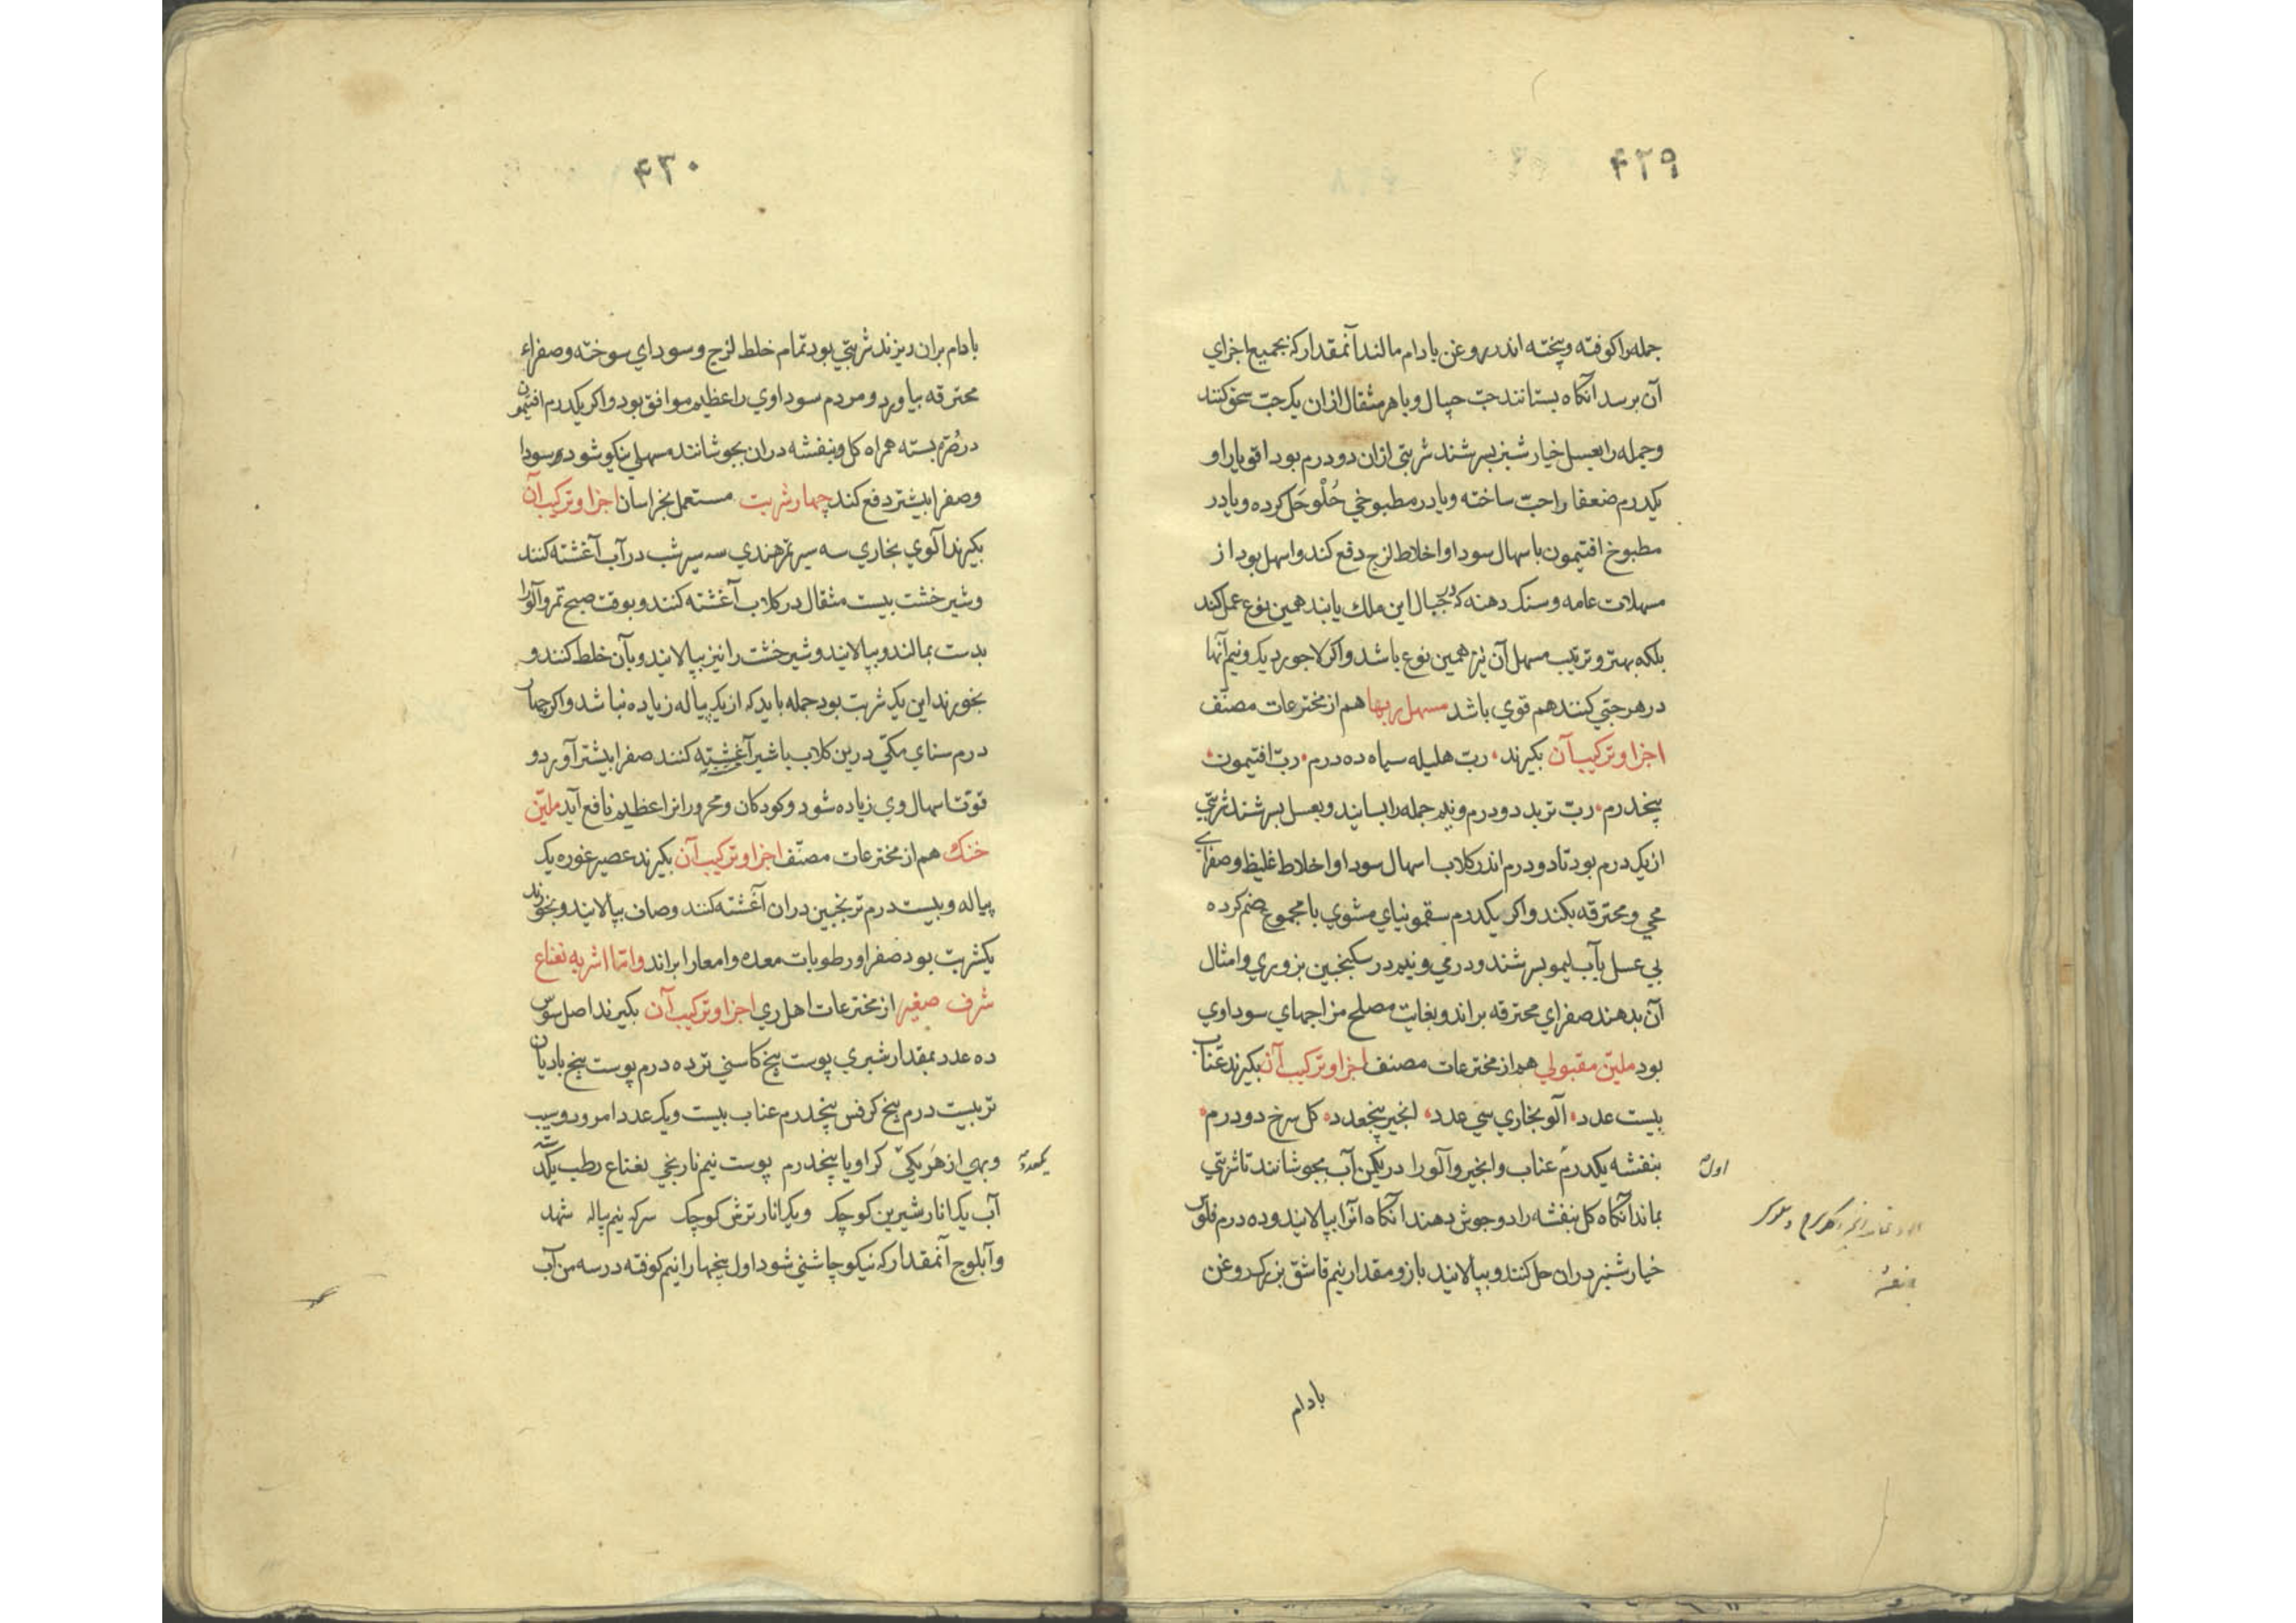 ۴۲۹
جمله را کوفته و پخته اندر روغن بادام مالند آنمقدار که بجمیع اجزای
آن برسد آنکاه بستانند حبّ حپال و با هر مثقال ازان یک حبّ سحق کنند
و جمله را بعسل خیار شنبر بسرشند شربتی ازان دو درم بود اقویا را و
یکدرم ضعفا را حبّ ساخته و یا در مطبوخی حُلْو حَل کرده و یا در
مطبوخ افتیمون باسهال سودا و اخلاط لزج دفع کند و اسهل بود از
مسهلات عامه و سنک دهنه که در جبال این ملک یابند همین نوع عمل کند
بلکه بهتر و ترتیب مسهل آن نیز همین نوع باشد و اکر لاجورد یک و نیم آنها
در هر حبّی کنند هم قوی باشد مسهل ربها هم از مخترعات مصنّف
اجزا و ترکیب آن بکیرند ربّ هلیله سیاه ده درم ربّ افتیمون
پنجدرم ربّ تربد دو درم و نیم جمله را بسایند و بعسل بسرشند شربتی
از یک درم بود تا دو درم اندر کلاب اسهال سودا و اخلاط غلیظ و صفرای
محی و محترقه بکند و اکر یکدرم سقمونیای مشوی با مجموع ضم کرده
بی عسل بآب لیمو بسرشند و درمی و نیم در سکنجبین بزوری و امثال
آن بدهند صفرای محترقه براند و بغایت مصلح مزاجهای سوداوی
بود ملیّن مقبولی هم از مخترعات مصنف اجزا و ترکیب آن بکیرند عنّاب
بیست عدد آلو بخاری سی عدد انجیر پنجعدد کل سرخ دو درم
بنفشه یکدرم عناب و انجیر و آلو را در یکمن آب بجوشانند تا شربتی
اول
بماند آنکاه کل بنفشه را دو جوش دهند آنکاه آنرا بپالایند و ده درم فلوس
خیار شنبر دران حل کنند و بپالایند باز و مقدار نیم قاشق بزرک روغن
بنفشه
بادام
۴۳۰
بادام بران ریزند شربتی بود تمام خلط لزج و سودای سوخته و صفراء
محترقه بیاورد و مردم سوداوی را عظیم موافق بود و اکر یکدرم افتیمون
در صُرّه بسته همراه کل و بنفشه دران بجوشانند مسهلی نیکو شود و سودا
و صفرا بیشتر دفع کند چهار شربت مستعمل بخراسان اجزا و ترکیب آن
بکیرند آلوی بخاری سه سیر تمر هندی سه سیر شب در آب آغشته کنند
و شیر خشت بیست مثقال در کلاب آغشته کنند و بوقت صبح تمر و آلو را
بدست بمالند و بپالایند و شیر خشت را نیز بپالایند و بآن خلط کنند و
بخورند این یک شربت بود جمله باید که از یک پیاله زیاده نباشد و اکر چهار
درم سنای مکّی درین کلاب یا شیر آغشته کنند صفرا بیشتر آورد و
قوّت اسهال وی زیاده شود و کودکان و محرورانرا عظیم نافع آید ملیّن
خنک هم از مخترعات مصنّف اجزا و ترکیب آن بکیرند عصیر غوره یک
پیاله و بیست درم ترنجبین دران آغشته کنند و صاف بپالایند و بخورند
یکشربت بود صفرا و رطوبات معده و امعا را براند و امّا اشربه نعناع
شرف صغیر از مخترعات اهل ری اجزا و ترکیب آن بکیرند اصل سوس
ده عدد بمقدار شبری پوست بیخ کاسنی تر ده درم پوست بیخ بادیان
تر بیست درم بیخ کرفس پنجدرم عناب بیست و یک عدد امرود و سیب
و بهی از هَر یکی کراویا پنجدرم پوست نیم نارنجی نعناع رطب یکدسته
یکعدد
آب یک انار شیرین کوچک و یک انار ترش کوچک سرکه نیم پیاله شهد
و آبلوج آنمقدار که نیکو چاشنی شود اول بیخها را نیم کوفته در سه من آب